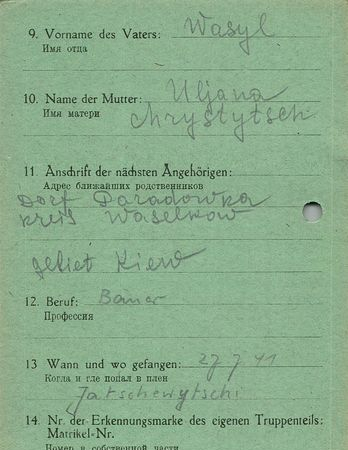 9. Vorname des Vaters: Wasyl
Имя отца
10. Name der Mutter: Uljana
Имя матери Chrystytsch
11. Anschrift der nächsten Angehörigen:
Адрес ближайших родственников
Dorf Paradowka
Kreis Waselkow
Gebiet Kiew
12. Beruf: Bauer
Профессия
13 Wann und wo gefangen: 27 7 41
Когда и где попал в плен
Jatschewytschi
14. Nr. der Erkennungsmarke des eigenen Truppenteils:
Matrikel-Nr.
Номер в собственной части